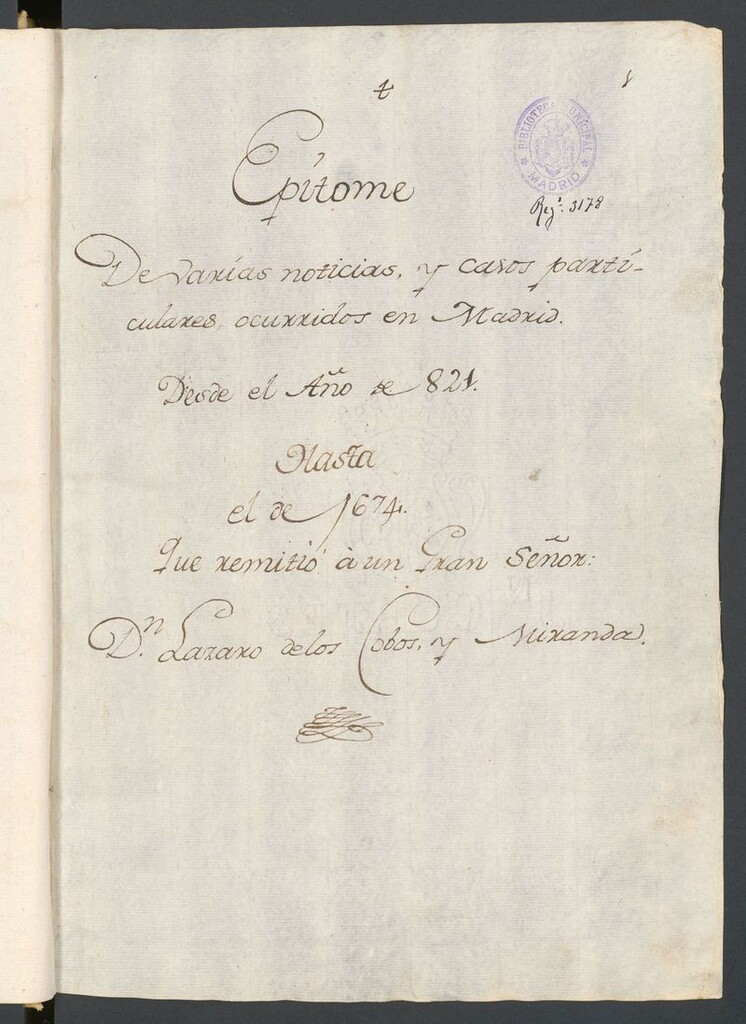 BIBLIOTECA MUNICIPAL
MADRID
Rejº. 3178
Epítome
De varías noticias, y casos partí-
culares, ocurridos en Madrid.
Desde el Año de 821.
Hasta
el de 1674.
Que remitió à un Gran Señor:
D.n Lazaro delos Cobos, y Miranda.